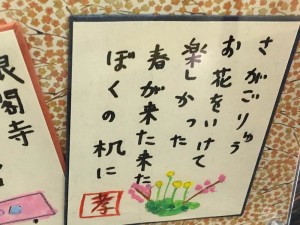 さがごりゅう
お花をいけて
楽しかった
春が来た来た
ぼくの机に
孝
銀閣寺